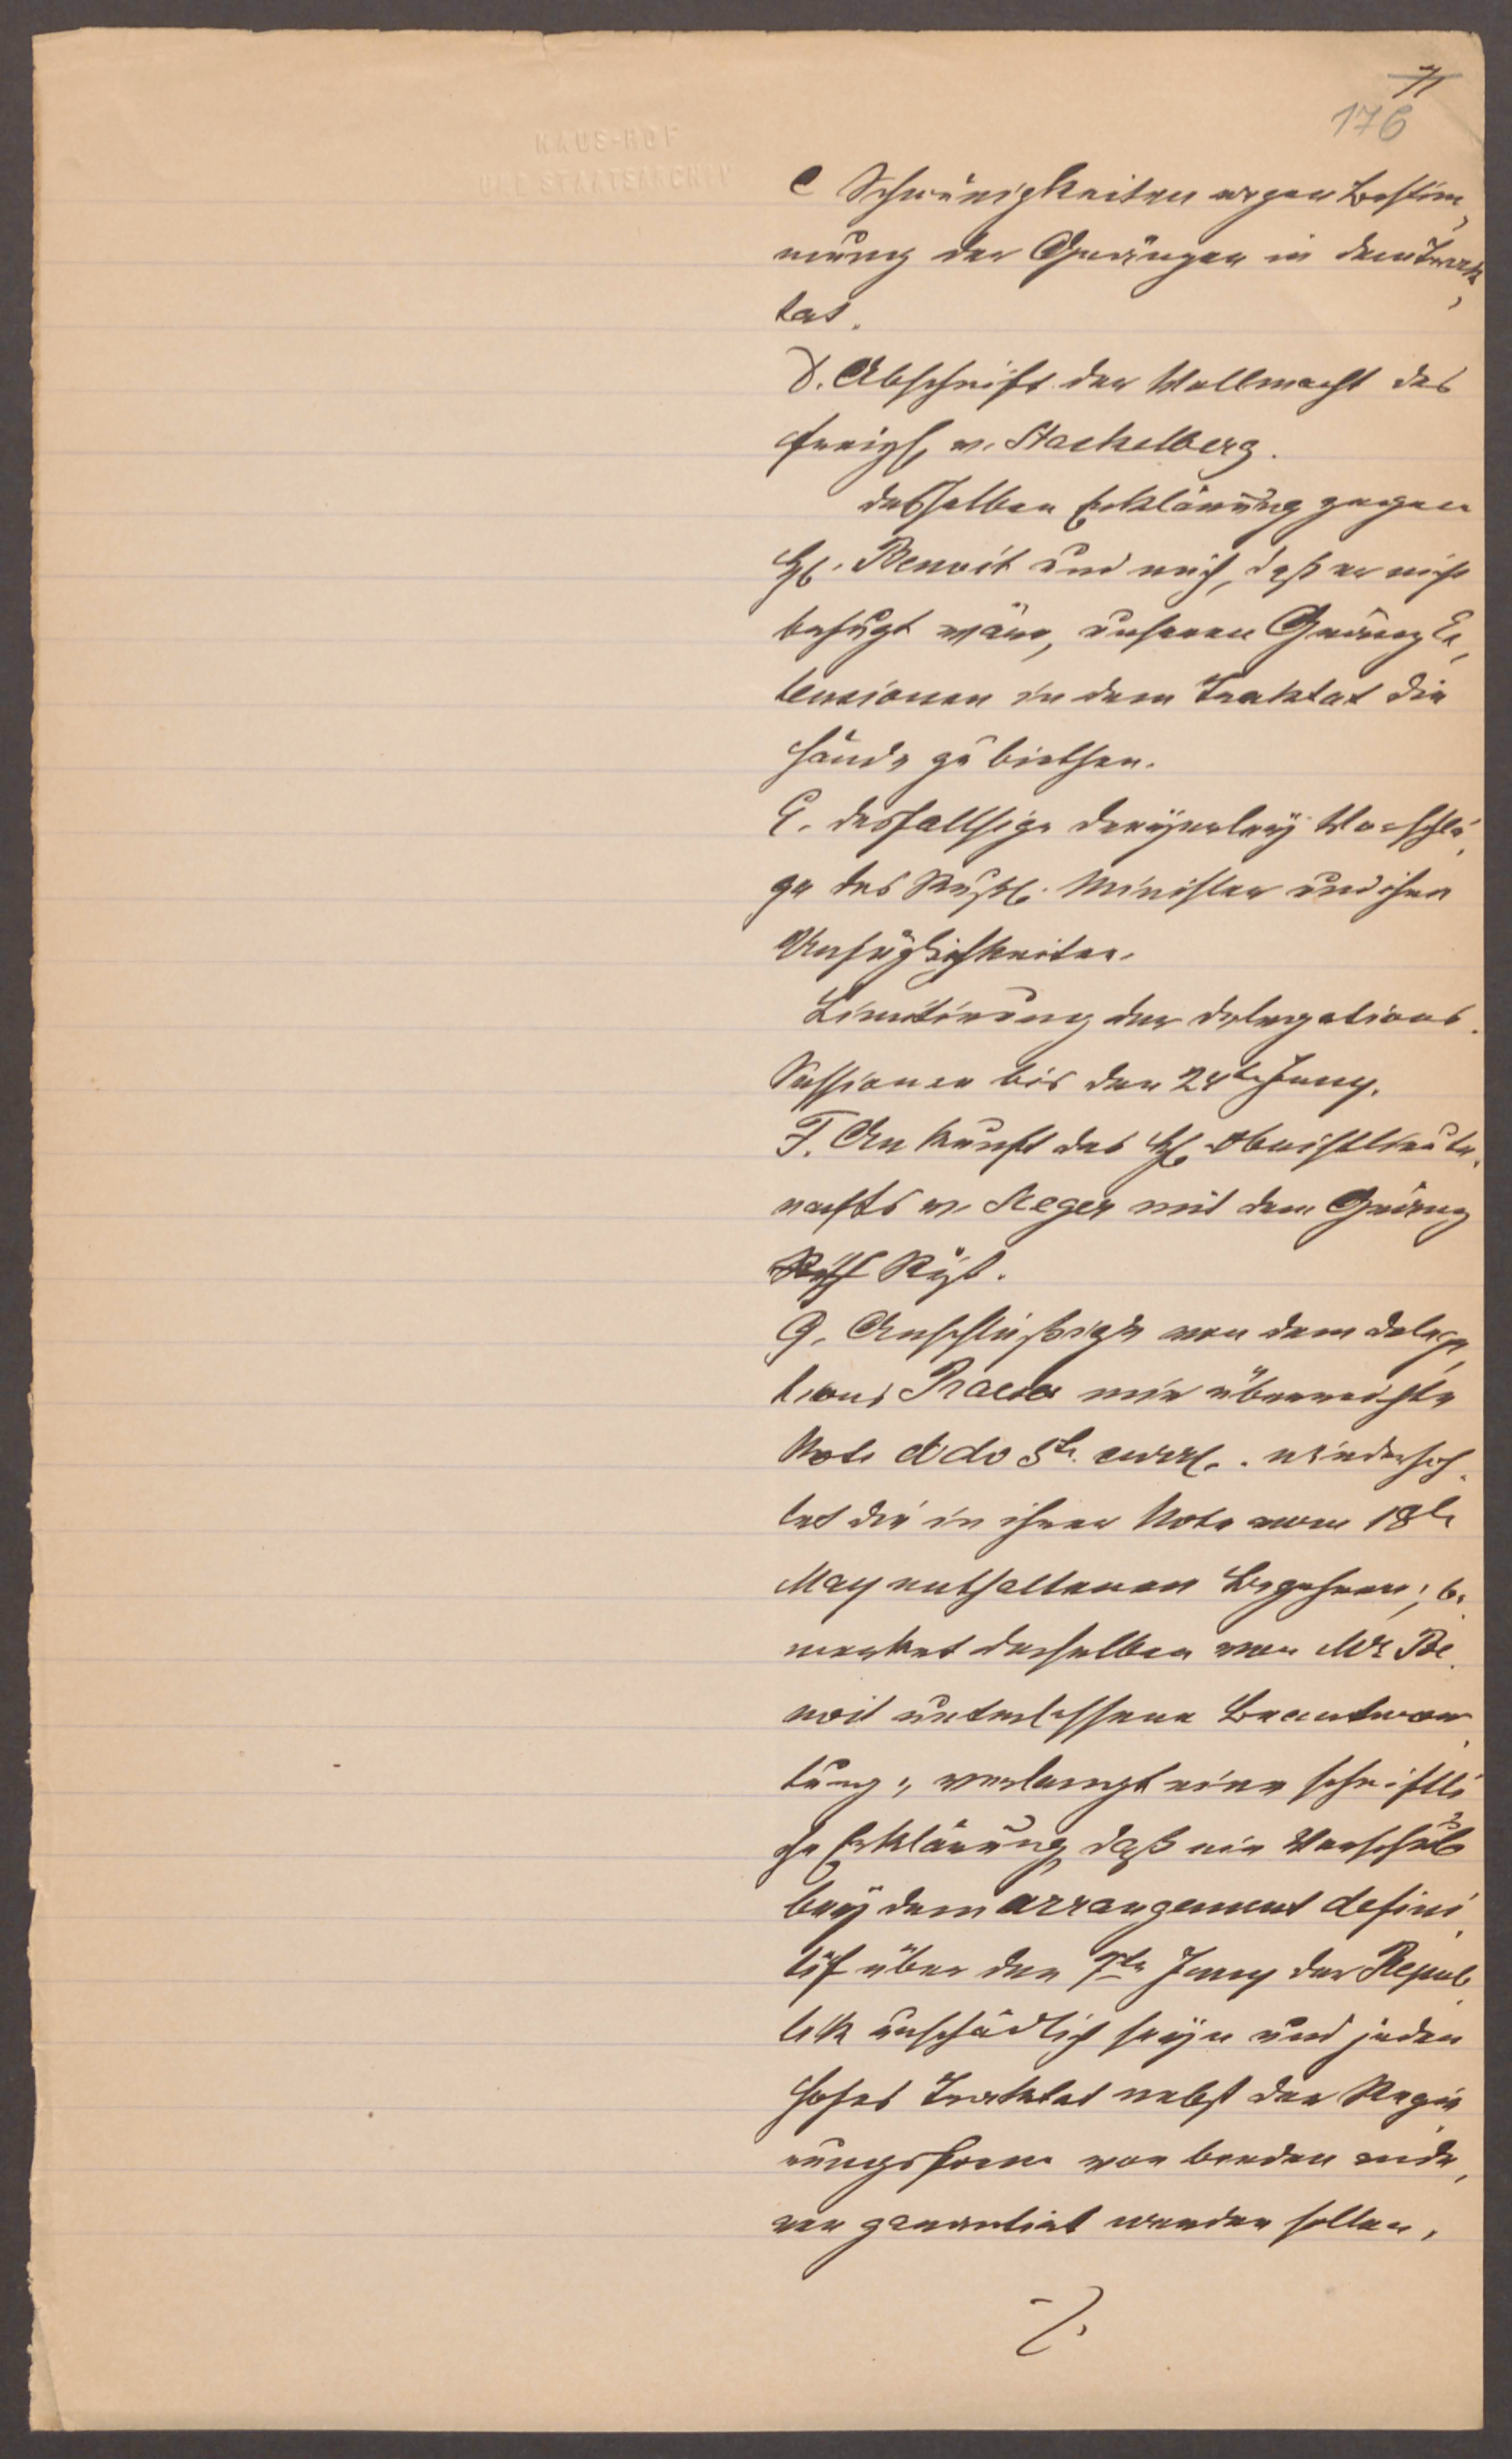 71
176
HAUS-HOF
UND STAATSARCHIV
C Schwürigkeiten wegen Bestim„
mung der Gränzen in dem Trak„
tat.
D. Abschrift der Vollmacht des
Freih. v. Stackelberg.
desselben Erklärung gegen
H. Benoit und mich, daß er nicht
befugt wäre, unseren Gränz Ex„
tensionen in dem Traktat die
Hände zu biethen.
E. desfallsige dreyerley Vorschlä„
ge des Russ. Minister und ihre
Unfüglichkeiten.
Limitirung der Delegations„
Sessionen bis den 24te Juny.
F. Ankunft des H. Obristlieute„
nants v. Seeger mit dem Gränz
Riß.
G. Anschlüßige von dem Delega„
tions Praeses mir überreichte
Note ddo 5te curr. wiederhoh„
let die in ihrer Note vom 18te
May enthaltenen Begehren; be„
merket derselben von Mr Be„
noit unterlassene Beantwor„
tung; verlangt eine schriftli„
che Erklärung, daß ein Verschub
bey dem arrangement defini„
tif über den 7te Juny der Repub„
lik unschädlich seyn und jeden
Hofes Traktat nebst der Regie„
rungsform von beeden ande„
ren garantirt werden sollen,
./.